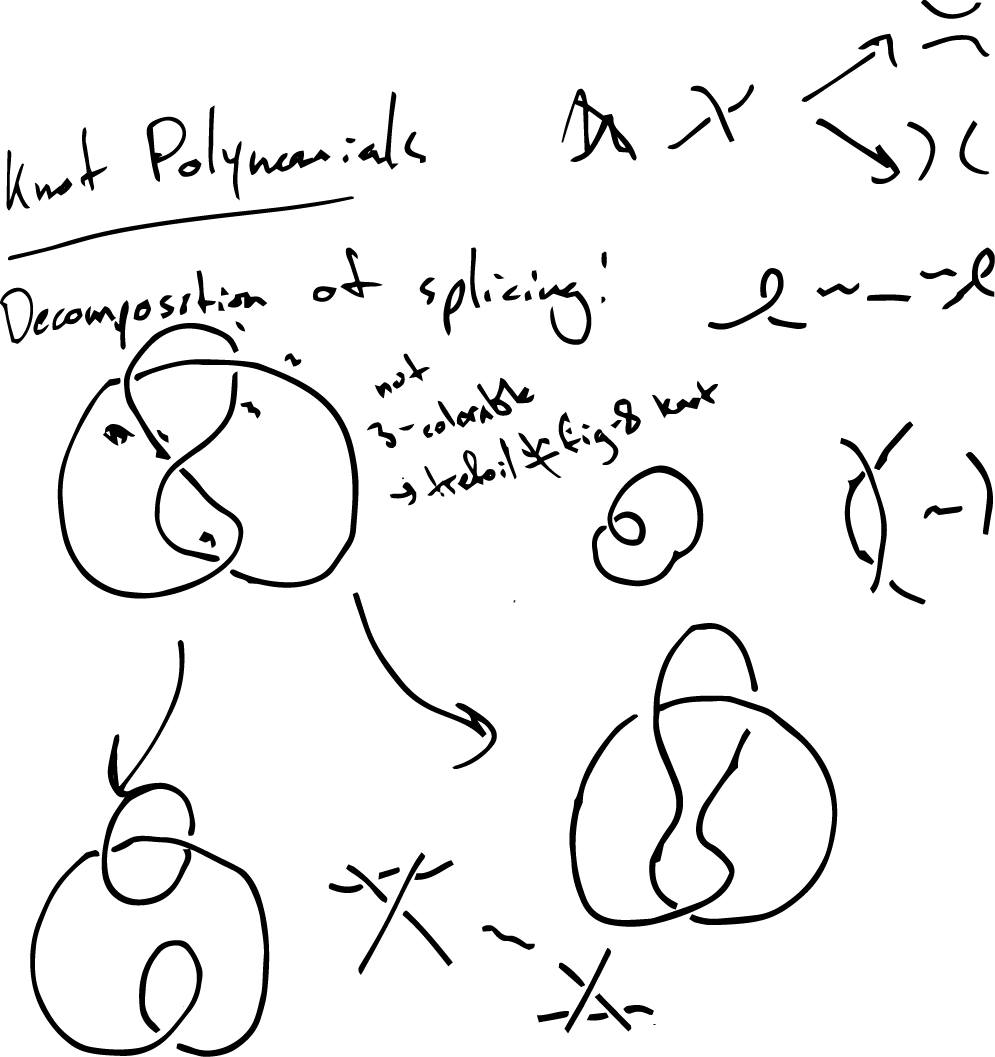 Knot Polynomials
Decomposition of splicing!
not
3-colorable
→ trefoil ≠ fig-8 knot